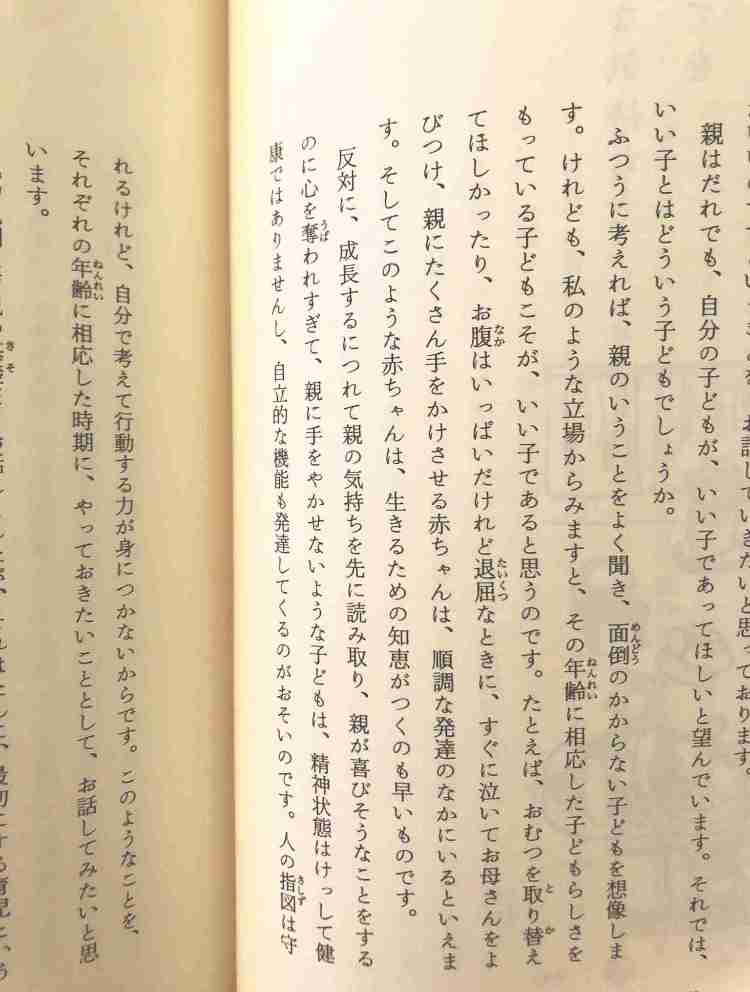 お話していきたいと思っております。
親はだれでも、自分の子どもが、いい子であってほしいと望んでいます。それでは、
いい子とはどういう子どもでしょうか。
ふつうに考えれば、親のいうことをよく聞き、面倒のかからない子どもを想像しま
す。けれども、私のような立場からみますと、その年齢に相応した子どもらしさを
もっている子どもこそが、いい子であると思うのです。たとえば、おむつを取り替え
てほしかったり、お腹はいっぱいだけれど退屈なときに、すぐに泣いてお母さんをよ
びつけ、親にたくさん手をかけさせる赤ちゃんは、順調な発達のなかにいるといえま
す。そしてこのような赤ちゃんは、生きるための知恵がつくのも早いものです。
反対に、成長するにつれて親の気持ちを先に読み取り、親が喜びそうなことをする
のに心を奪われすぎて、親に手をやかせないような子どもは、精神状態はけっして健
康ではありませんし、自立的な機能も発達してくるのがおそいのです。人の指図は守
れるけれど、自分で考えて行動する力が身につかないからです。このようなことを、
それぞれの年齢に相応した時期に、やっておきたいこととして、お話してみたいと思
います。